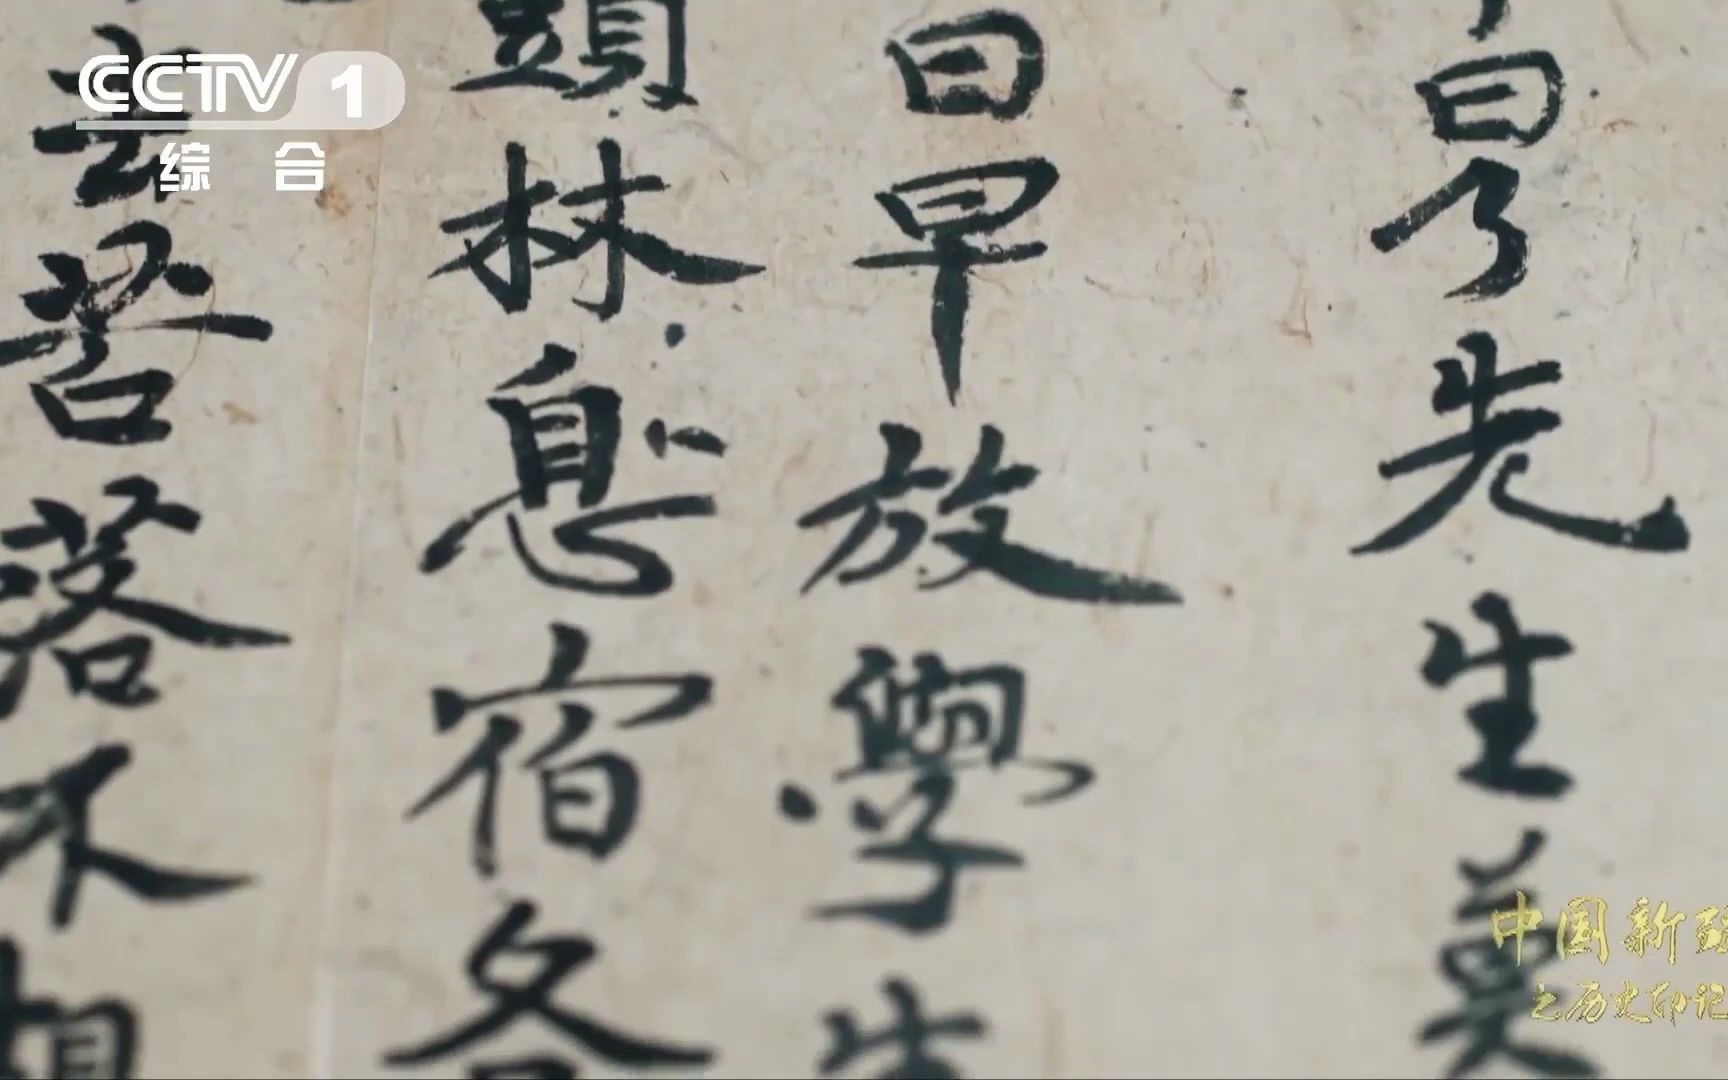 CCTV 1
综合
日了先生莫
日早放學生
頭林息宿各
去苦落不相
中国新疆
之历史印记